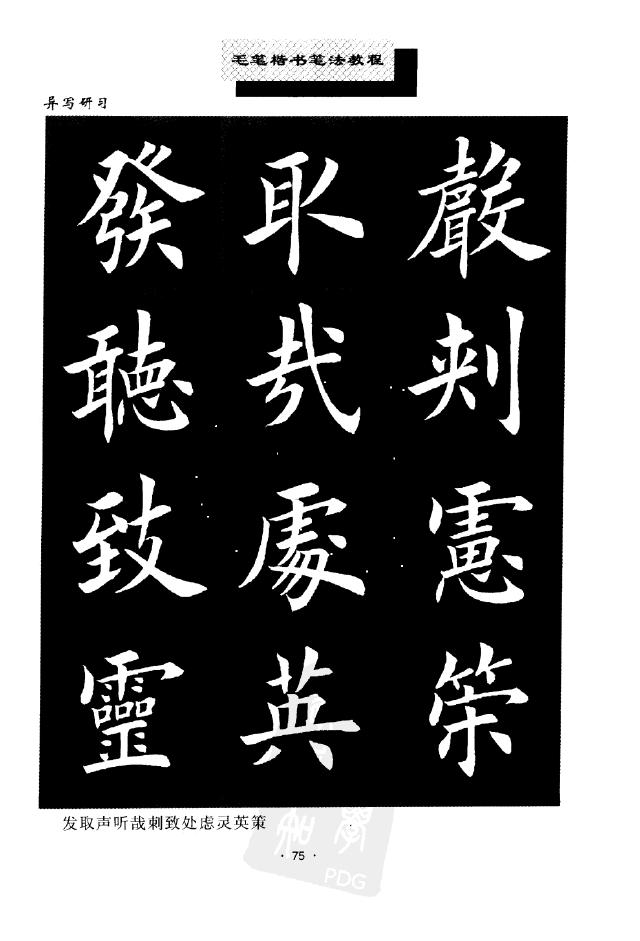 毛笔楷书笔法教程
异写研习
發取聲
聽哉刾
致處慮
靈英筞
发取声听哉刺致处虑灵英策
· 75 ·
PDG